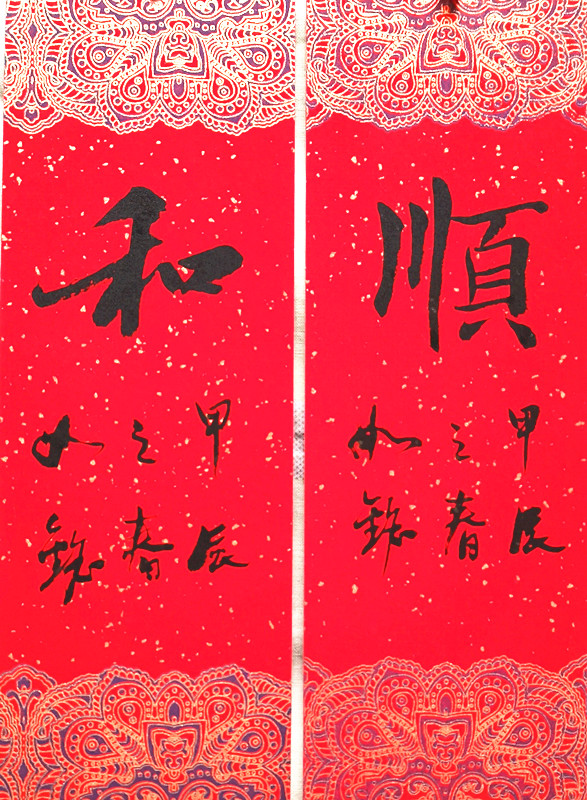 順
甲辰
之春
如
和
甲辰
之春
如